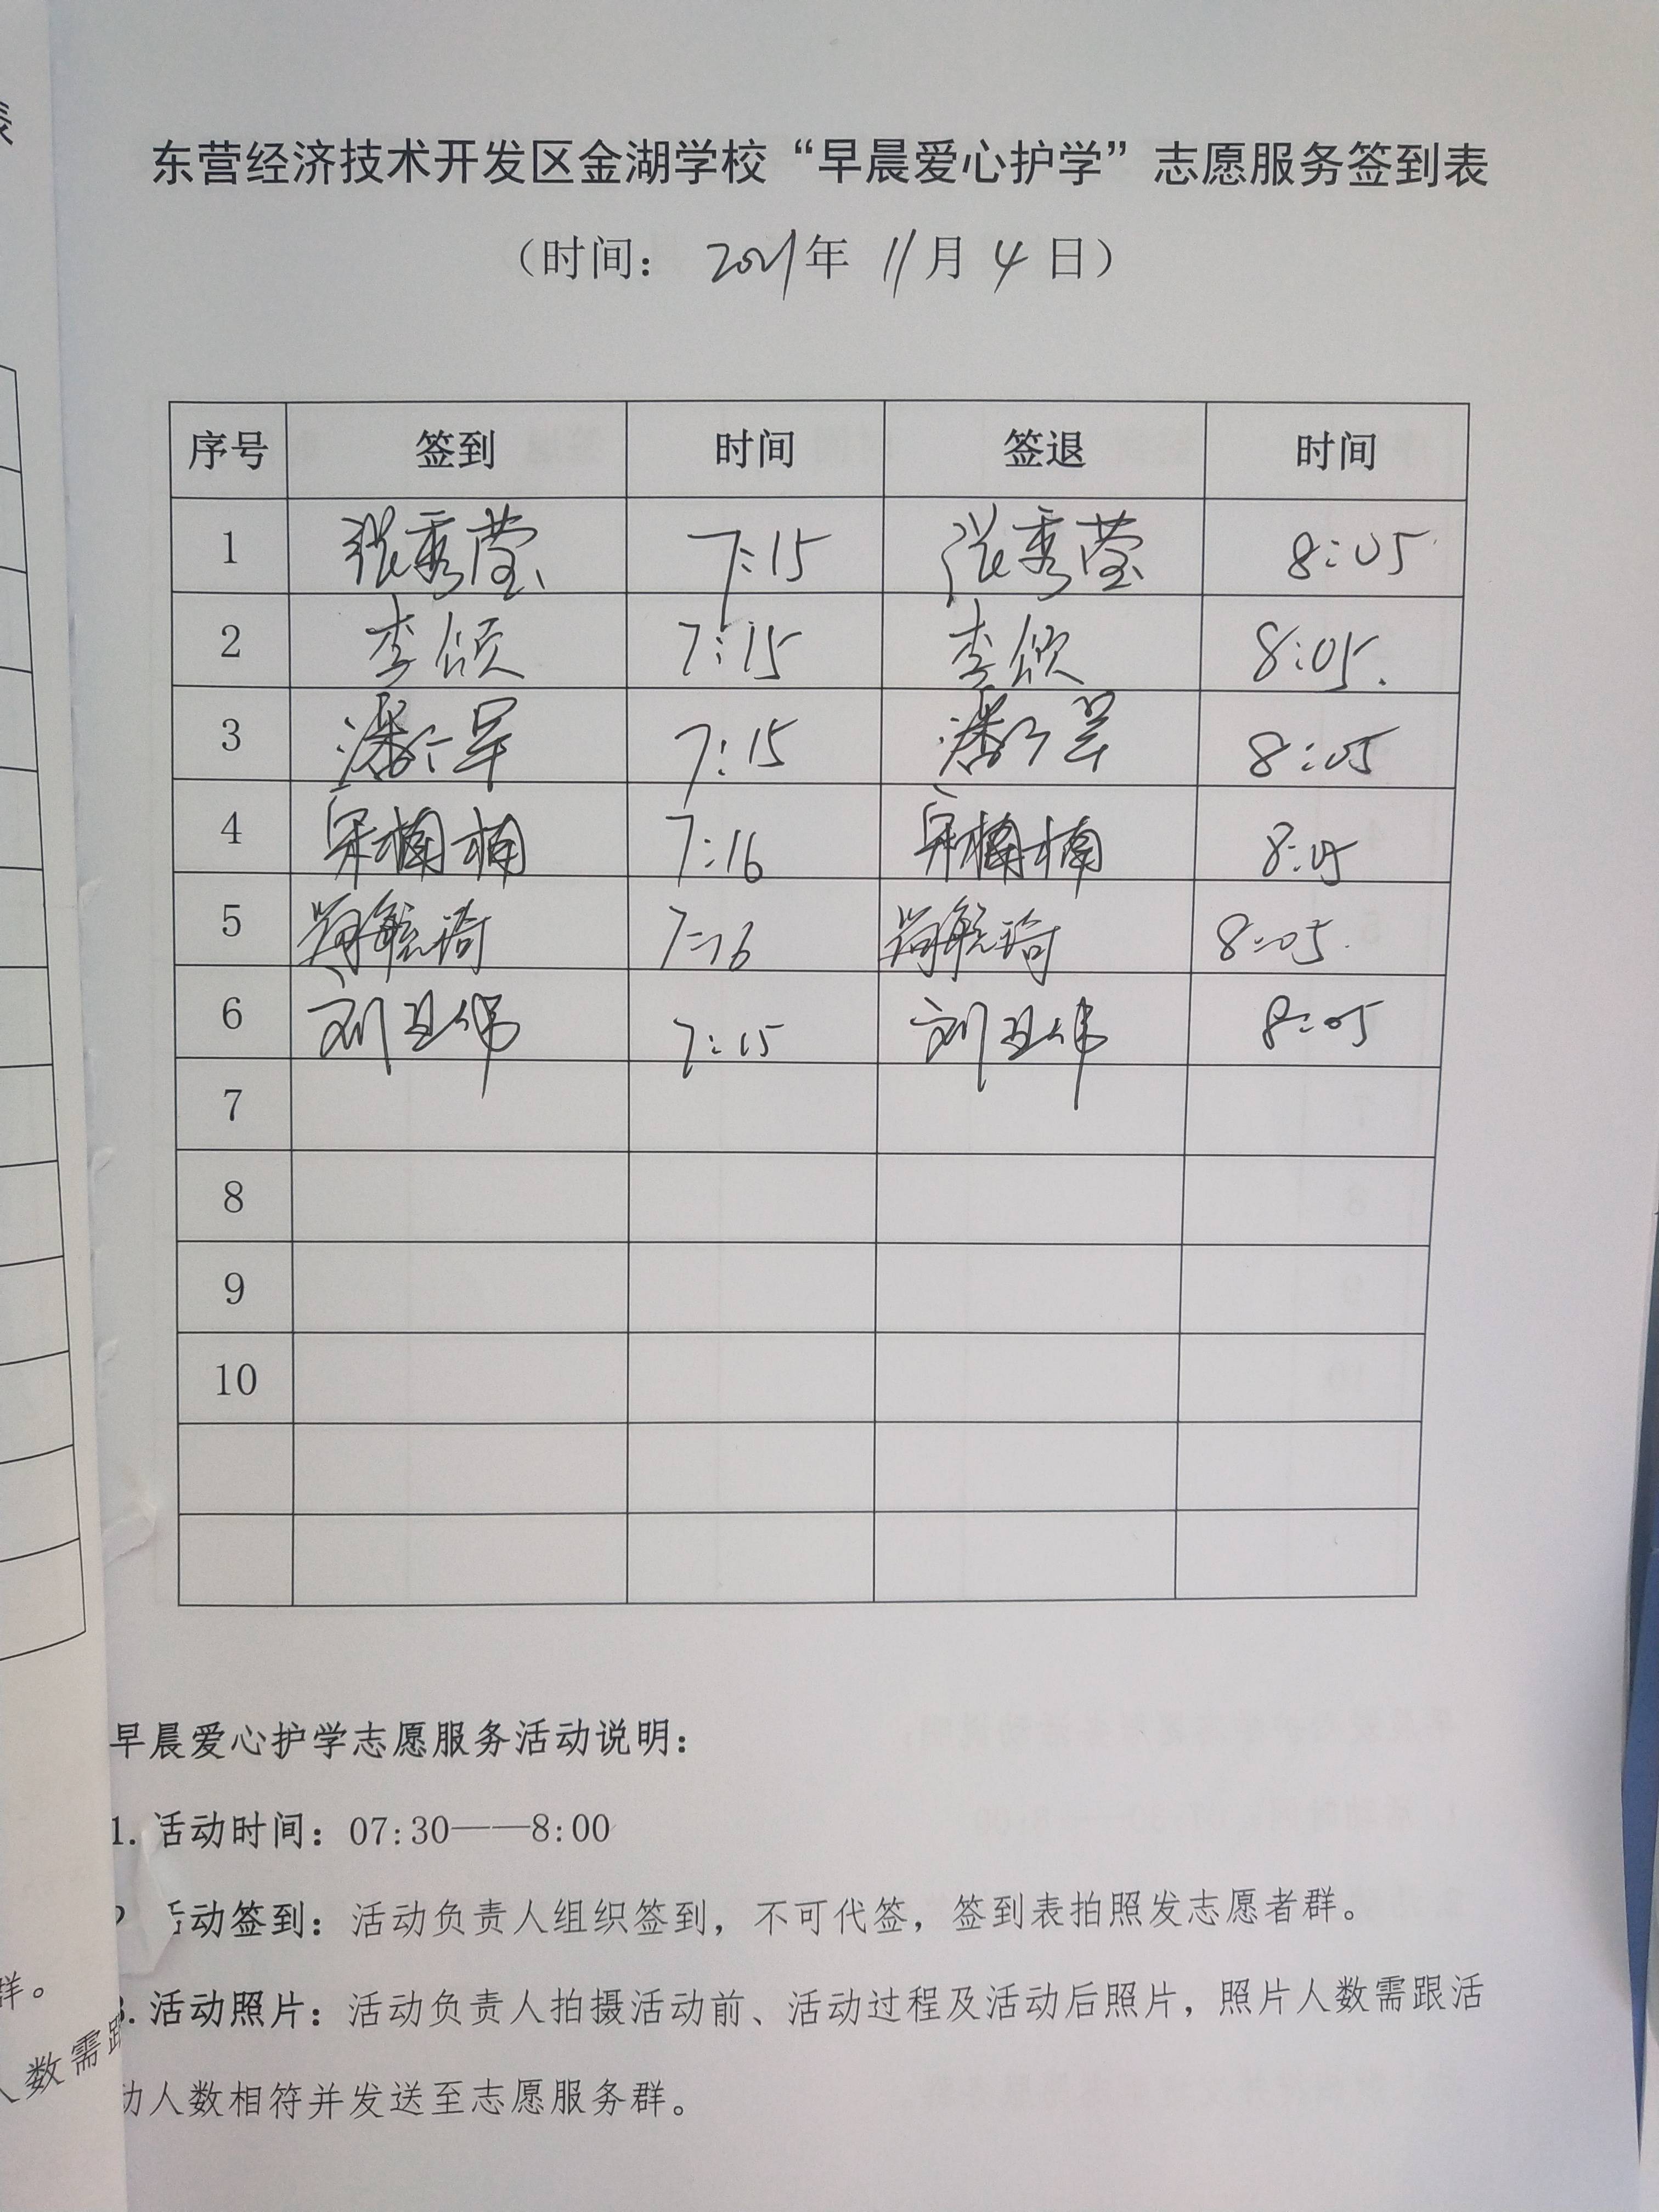 表
东营经济技术开发区金湖学校“早晨爱心护学”志愿服务签到表
（时间： 2021年 11月 4日）
序号 签到 时间 签退 时间
1 张秀莹 7:15 张秀莹 8:05
2 李颂 7:15 李颂 8:05.
3 潘 7:15 潘 8:05
4 宋楠楠 7:16 宋楠楠 8:05
5 7:16 8:05.
6 刘卫伟 7:15 刘卫伟 8:05
7
8
9
10
早晨爱心护学志愿服务活动说明：
1. 活动时间：07:30——8:00
2 活动签到：活动负责人组织签到，不可代签，签到表拍照发志愿者群。
3. 活动照片：活动负责人拍摄活动前、活动过程及活动后照片，照片人数需跟活
动人数相符并发送至志愿服务群。
群。
人数需跟